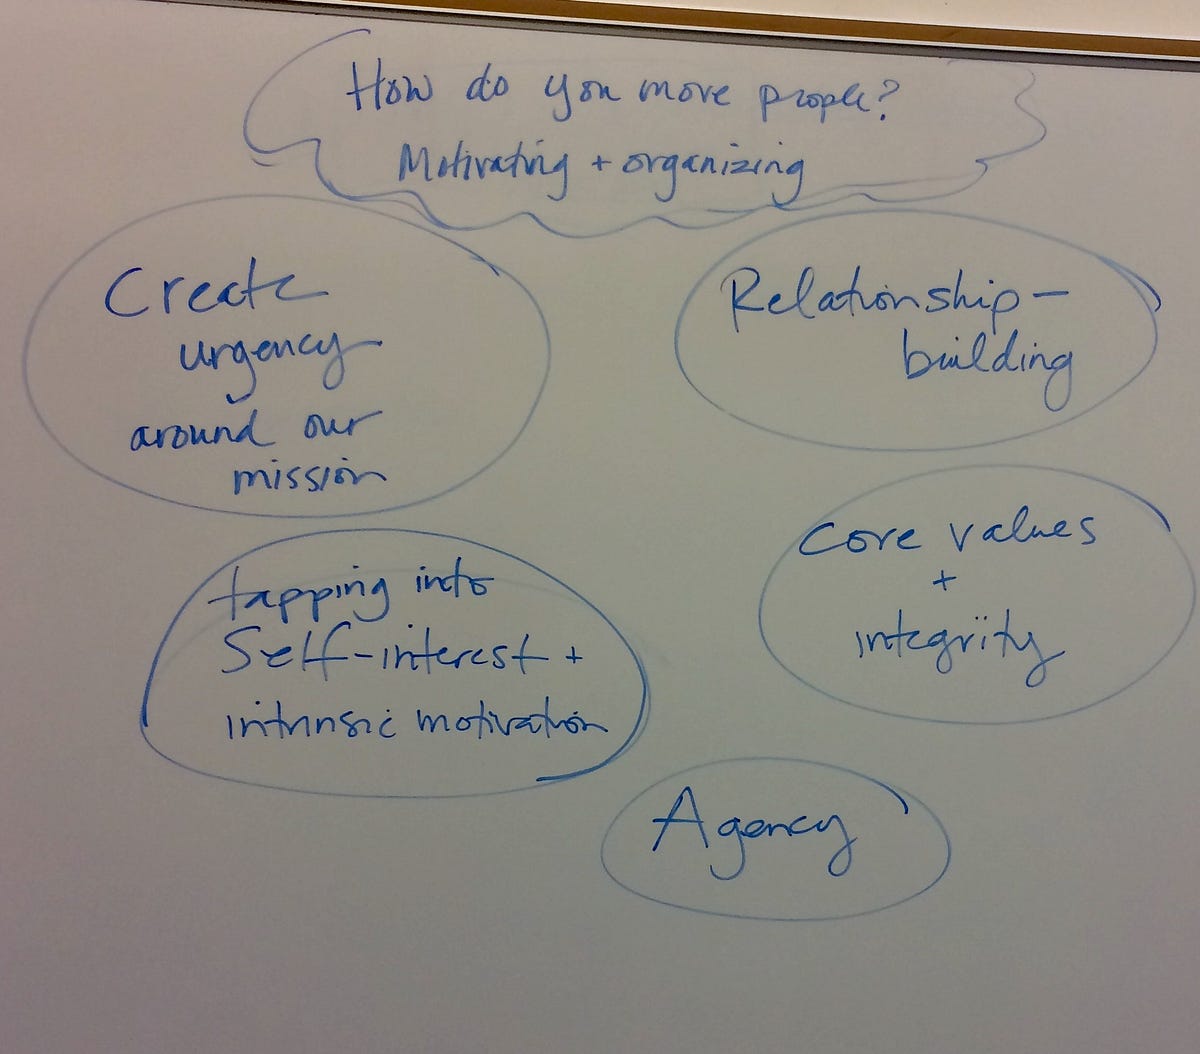 How do you move people?
Motivating + organizing
Create
urgency
around our
mission
Relationship-
building
tapping into
Self-interest +
intrinsic motivation
Core values
+
integrity
Agency